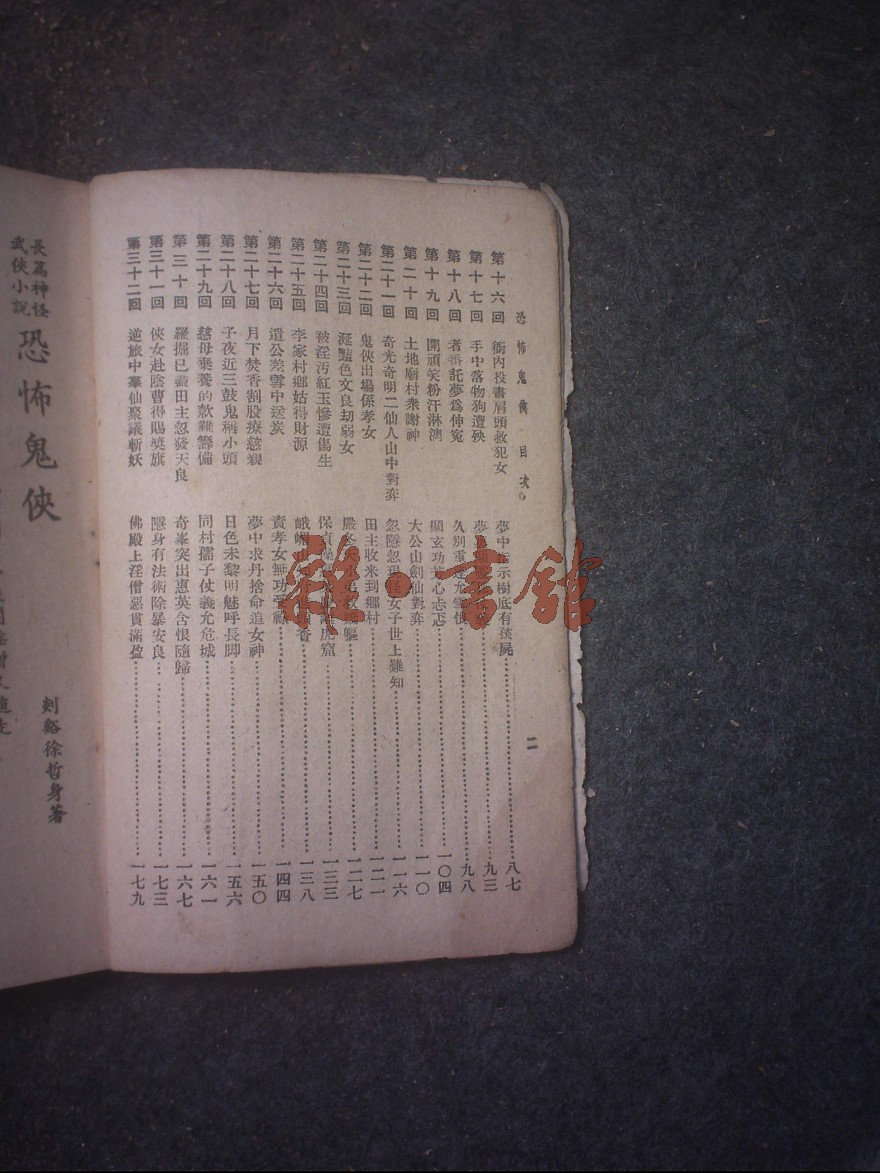 恐怖鬼俠 目次
二
第十六回 衙內投書肩頭救犯女 夢中 示樹底有孩屍 八七
第十七回 手中落物狗遭殃 夢 九三
第十八回 者番託夢為伸寃 久別重逢 九八
第十九回 開頑笑粉汗淋漓 顯玄功 心忐忑 一〇四
第二十回 土地廟村衆謝神 大公山劍仙對弈 一一〇
第二十一回 奇光奇明二仙人山中對弈 忽隱忽現 女子世上難知 一一六
第二十二回 鬼俠出場係孝女 田主收米到鄉村 一二一
第二十三回 涎豔色文良劫弱女 嚴冬天 救 軀 一二七
第二十四回 被淫汚紅玉慘遭傷生 保貞操 虎窟 一三三
第二十五回 李家村鄉姑得財源 峨嵋山 香 一三八
第二十六回 遣公差雪中送炭 責孝女無功受祿 一四四
第二十七回 月下焚香割股療慈親 夢中求丹捨命追女神 一五〇
第二十八回 子夜近三鼓鬼稱小頭 日色未黎明魅呼長脚 一五六
第二十九回 慈母棄養的款難籌備 同村孺子仗義允危城 一六一
第三十回 羅掘已盡田主忽發天良 奇峯突出惠英含恨隨歸 一六七
第三十一回 俠女赴陰曹得賜獎旗 隱身有法術除暴安良 一七三
第三十二回 逆旅中羣仙聚議斬妖 佛殿上淫僧惡貫滿盈 一七九
長篇神怪
武俠小說
恐怖鬼俠
剡谿徐哲身著
雜·書館